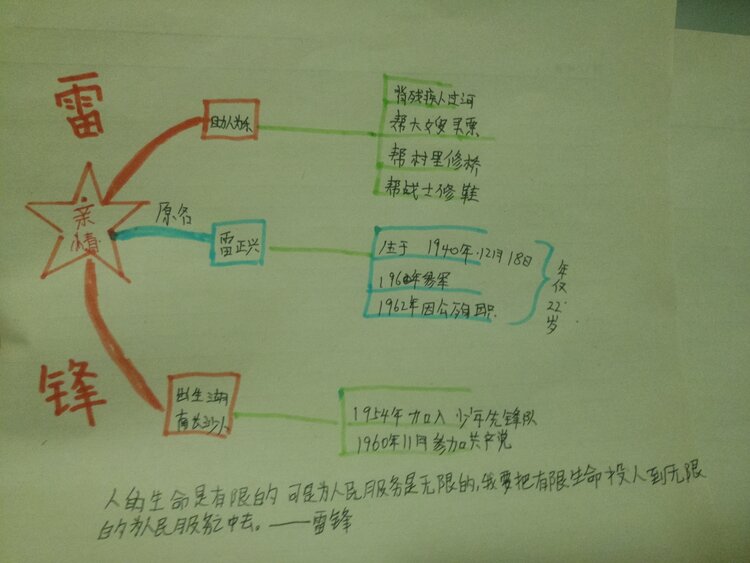 雷
亲情
锋
助人为乐
背残疾人过河
帮大嫂买票
帮村里修桥
帮战士修鞋
原名
雷正兴
生于 1940年.12月18日
1960年参军
1962年因公殉职.
年仅22岁
出生湖
南长沙人
1954年加入少年先锋队
1960年11月参加共产党
人的生命是有限的 可是为人民服务是无限的,我要把有限生命投人到无限
的为人民服务之中去。——雷锋